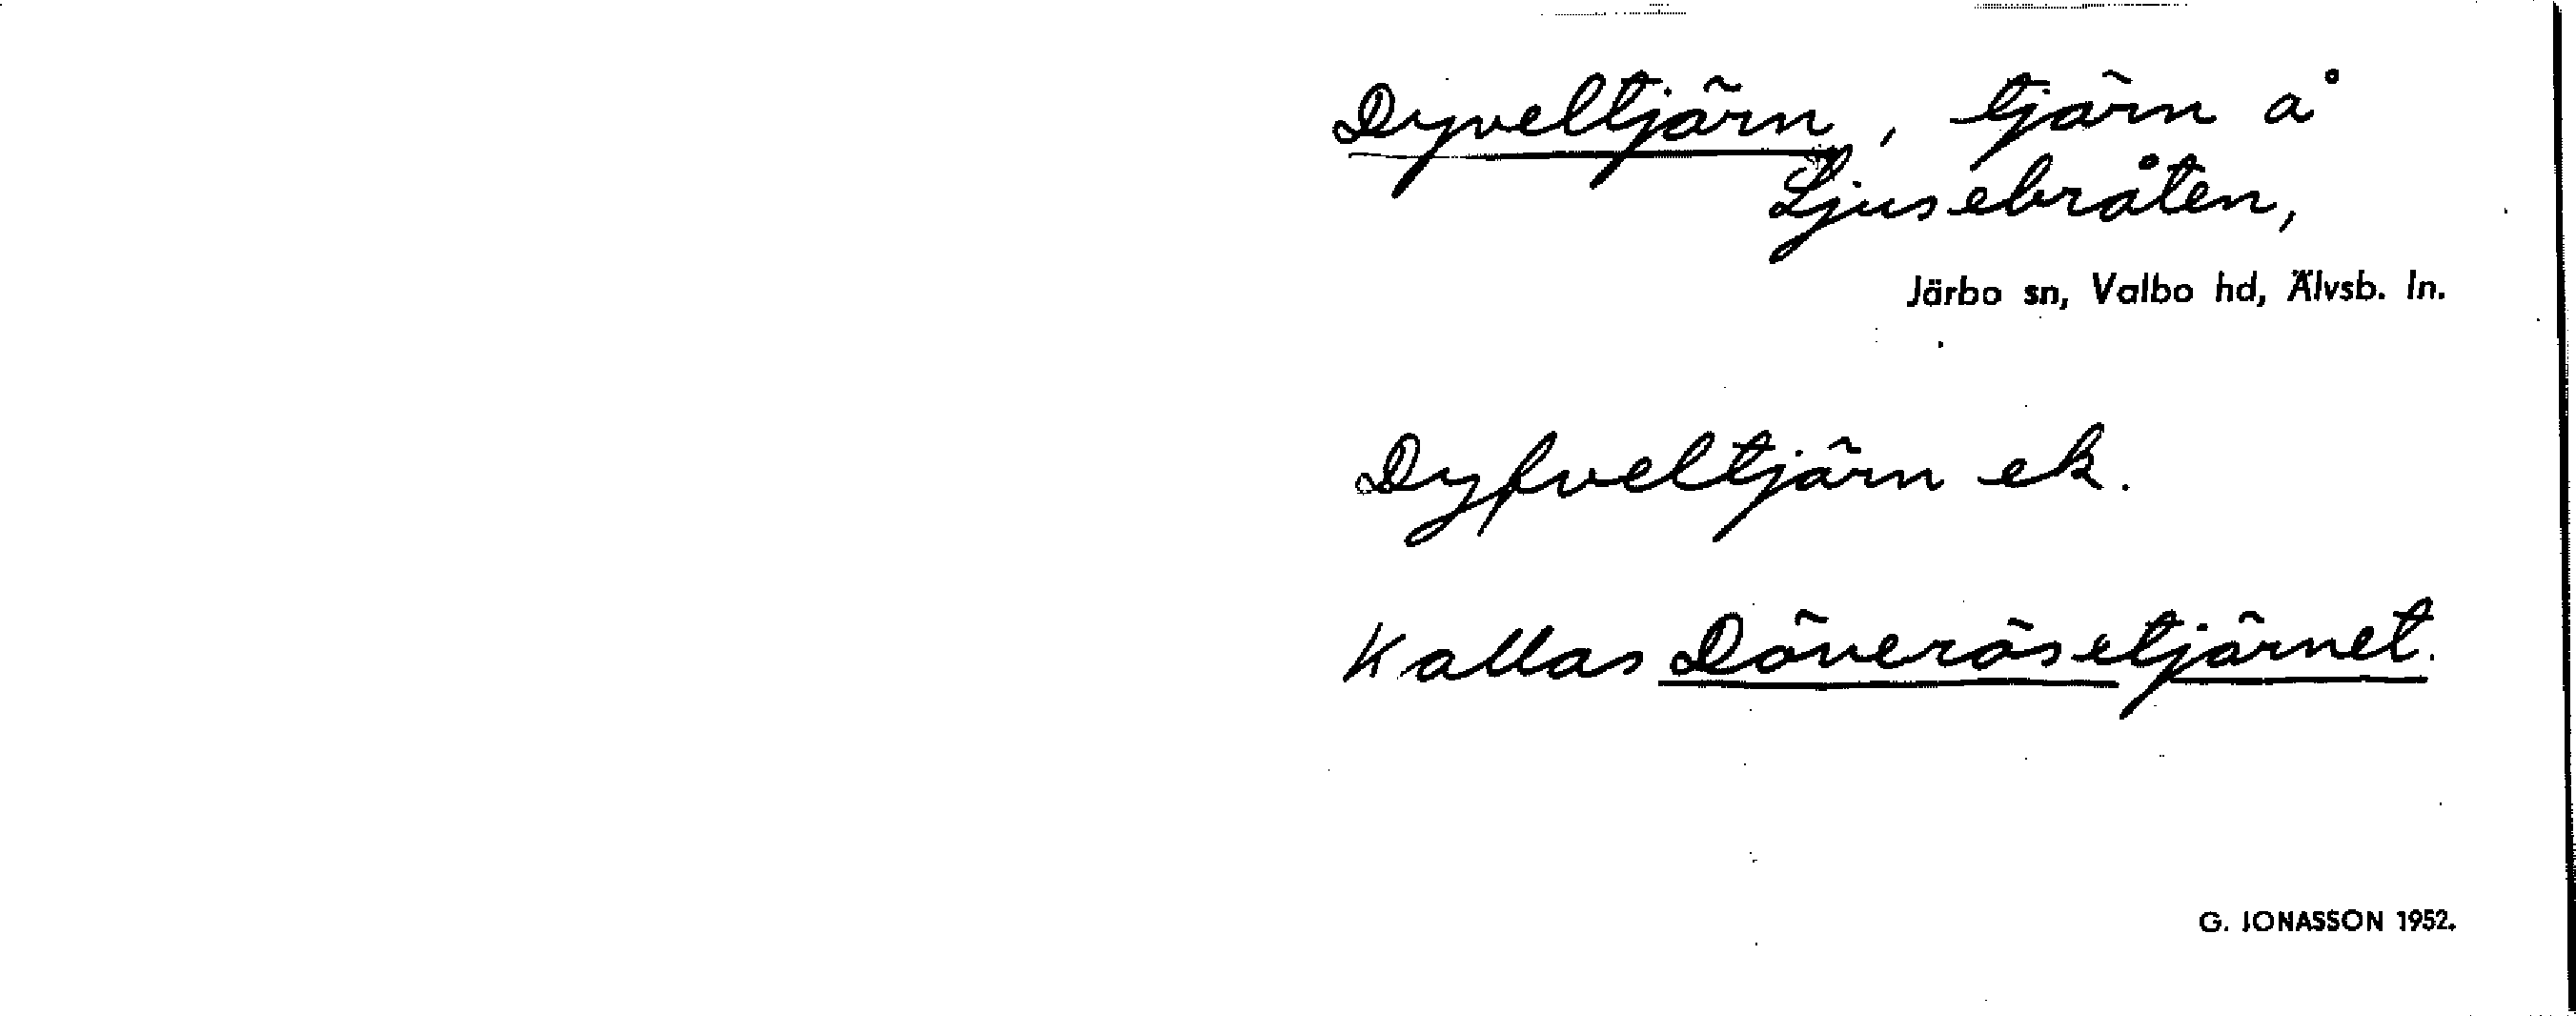 Dyveltjärn, tjärn å
Ljusebråten,
Järbo sn, Valbo hd, Älvsb. ln.
Dyfveltjärn ek.
Kallas Döverösetjärnet.
G. JONASSON 1952.